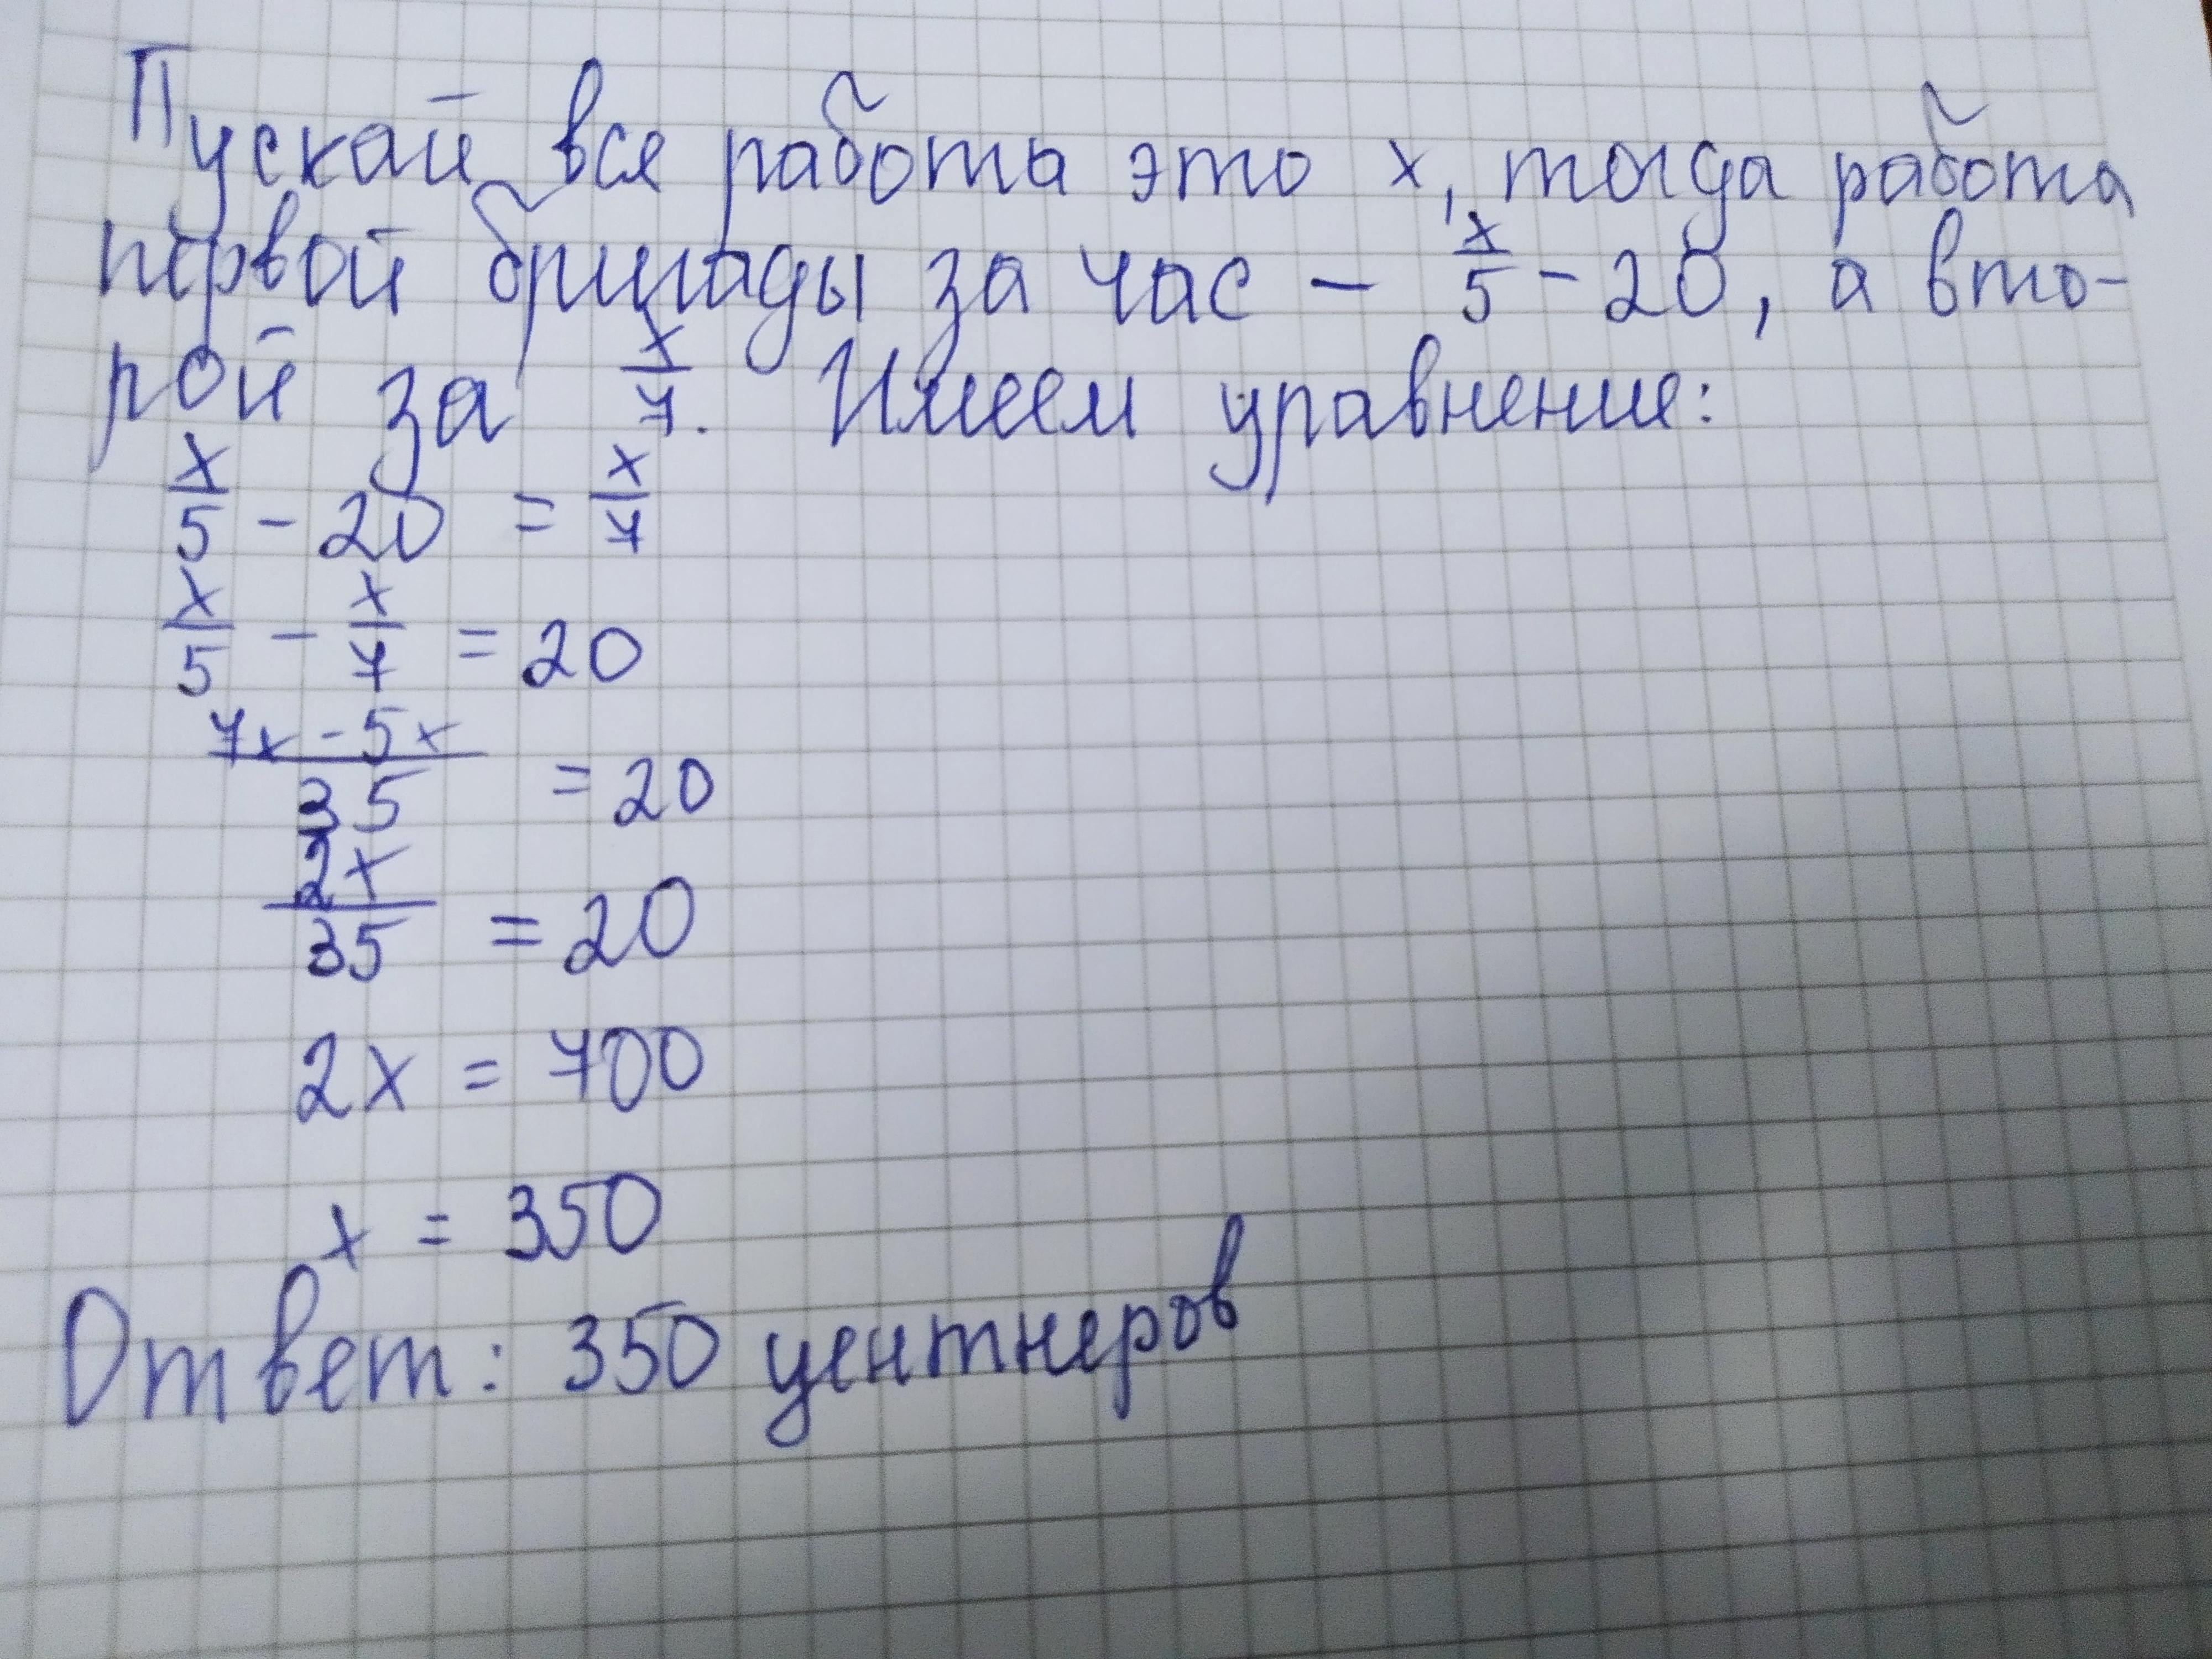 Пускай вся работа это x, тогда работа
первой бригады за час – x/5 - 20, а вто-
рой за x/7. Имеем уравнение:
x/5 - 20 = x/7
x/5 - x/7 = 20
7x - 5x/35 = 20
2x/35 = 20
2x = 700
x = 350
Ответ: 350 центнеров